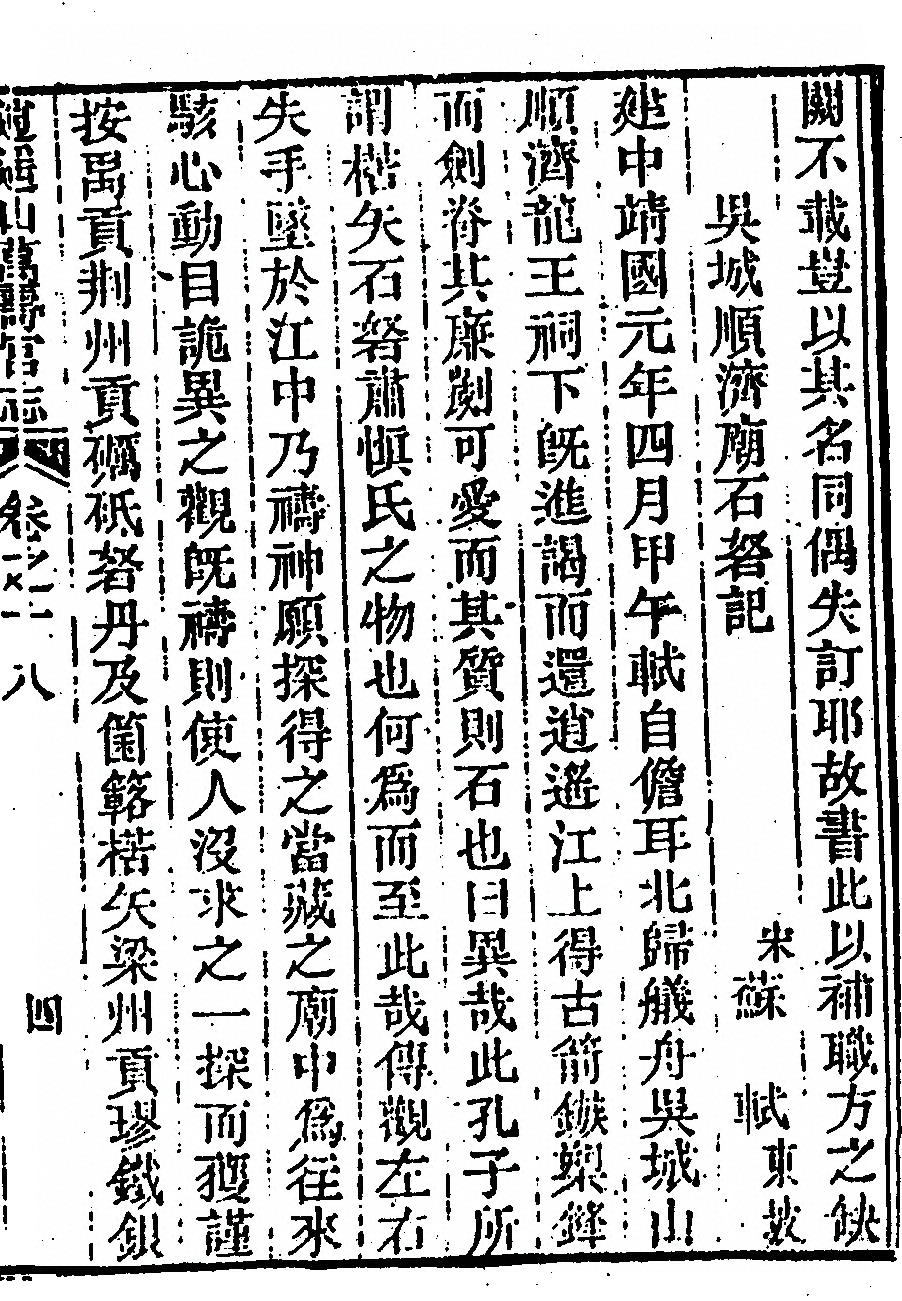 闕不載豈以其名同偶失訂耶故書此以補職方之缺
吳城順濟廟石砮記
宋蘇軾東坡
建中靖國元年四月甲午軾自儋耳北歸艤舟吳城山
順濟龍王祠下旣進謁而還逍遙江上得古箭鏃槊鋒
而劍脊其廉劌可愛而其質則石也曰異哉此孔子所
謂楛矢石砮肅愼氏之物也何爲而至此哉傳觀左右
失手墜於江中乃禱神願探得之當藏之廟中爲往來
駭心動目詭異之觀旣禱則使人沒求之一探而獲謹
按禹貢荆州貢礪砥砮丹及箘簵楛矢梁州貢璆鐵銀
逍遙山萬壽宮志
卷之十八
四